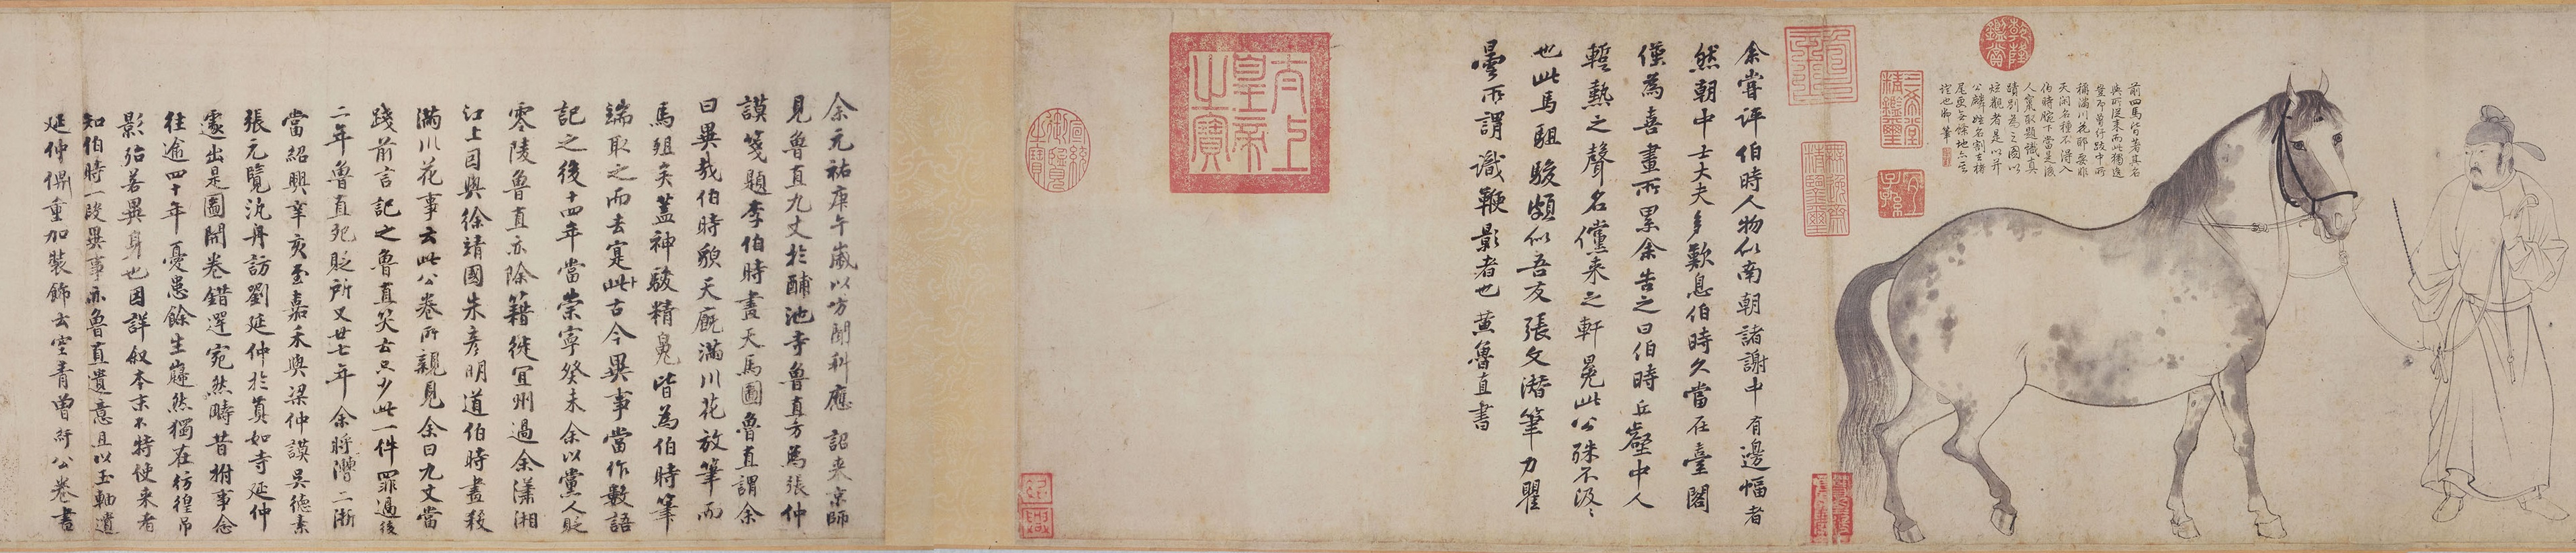 前四馬皆著其名
與所從来而此獨逸
豈即曾紆跋中所
稱滿川花耶要非
天閑名種不得入
伯時腕下當是後
人竄取題識真
蹟別為之圖以
炫觀者是以并
公麟姓名割去楮
尾更無餘地亦一
證也御筆
乾隆鑑賞
三希堂精鑑璽
宜子孫
余嘗評伯時人物似南朝諸謝中有邊幅者
然朝中士大夫多歎息伯時久當在臺閣
僅為喜畫所累余告之曰伯時丘壑中人
暫熱之聲名儻来之軒冕此公殊不汲々
也此馬駔駿頗似吾友張文潜筆力瞿
曇所謂識鞭影者也黄魯直書
太上皇帝之寶
宣統御覽之寶
余元祐庚午歲以方聞科應詔来京師
見魯直九丈於酺池寺魯直方為張仲
謨箋題李伯時畫天馬圖魯直謂余
曰異哉伯時貌天廐滿川花放筆而
馬殂矣蓋神駿精魄皆為伯時筆
端取之而去寔此古今異事當作數語
記之後十四年當崇寧癸未余以黨人貶
零陵魯直亦除籍徙宜州過余瀟湘
江上因與徐靖國朱彦明道伯時畫殺
滿川花事云此公卷所親見余曰九丈當
踐前言記之魯直笑云只少此一件罪過後
二年魯直死貶所又廿七年余將漕二浙
當紹興辛亥至嘉禾與梁仲謨吳德素
張元覽汎舟訪劉延仲於真如寺延仲
遽出是圖開卷錯愕宛然疇昔拊事念
往逾四十年憂患餘生巋然獨在彷徨弔
影殆若異身也因詳叙本末不特使来者
知伯時一段異事亦魯直遺意且以玉軸遺
延仲俾重加裝飾云空青曾紆公卷書